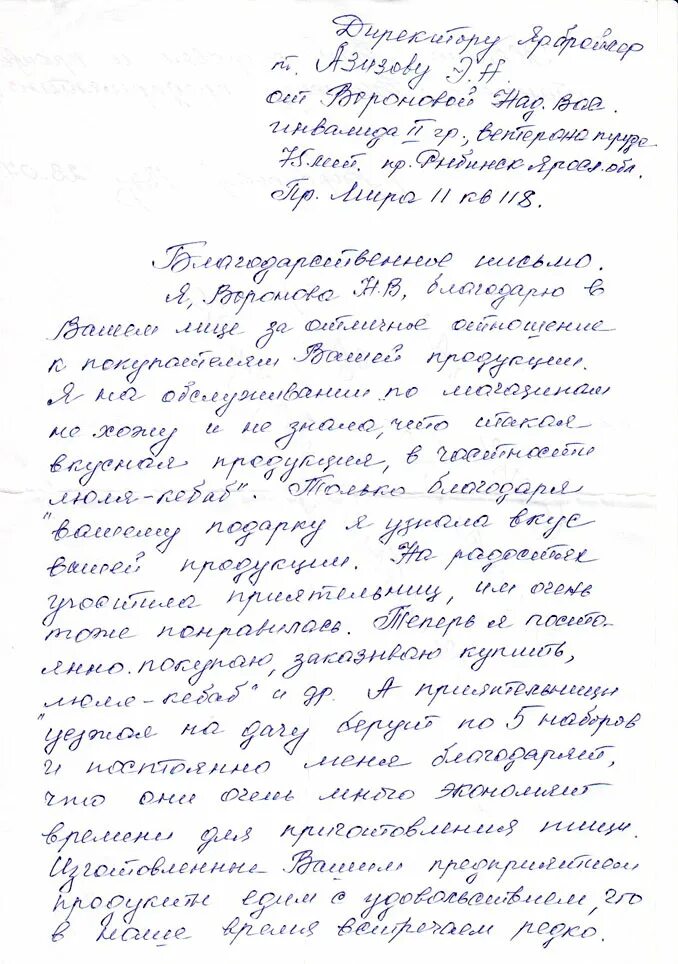 Директору Ярбройлер
т. Азизову Э.Н.
от Вороновой Над. Вас.
инвалида II гр., ветерана труда
75 лет. пр. Рыбинск Яросл. обл.
Пр. Мира 11 кв 118.
Благодарственное письмо.
Я, Воронова Н.В, благодарю в
Вашем лице за отличное отношение
к покупателям Вашей продукции.
Я на обслуживании по магазинам
не хожу и не знала, что такая
вкусная продукция, в частности
"люля-кебаб". Только благодаря
вашему подарку я узнала вкус
вашей продукции. На радостях
угостила приятельниц, им очень
тоже понравилась. Теперь я посто-
янно покупаю, заказываю купить,
"люля-кебаб" и др. А приятельницы
уезжая на дачу берут по 5 наборов
и постоянно меня благодарят,
что они очень много экономят
времени для приготовления пищи.
Изготовленные Вашим предприятием
продукты едим с удовольствием, что
в наше время встречаем редко.